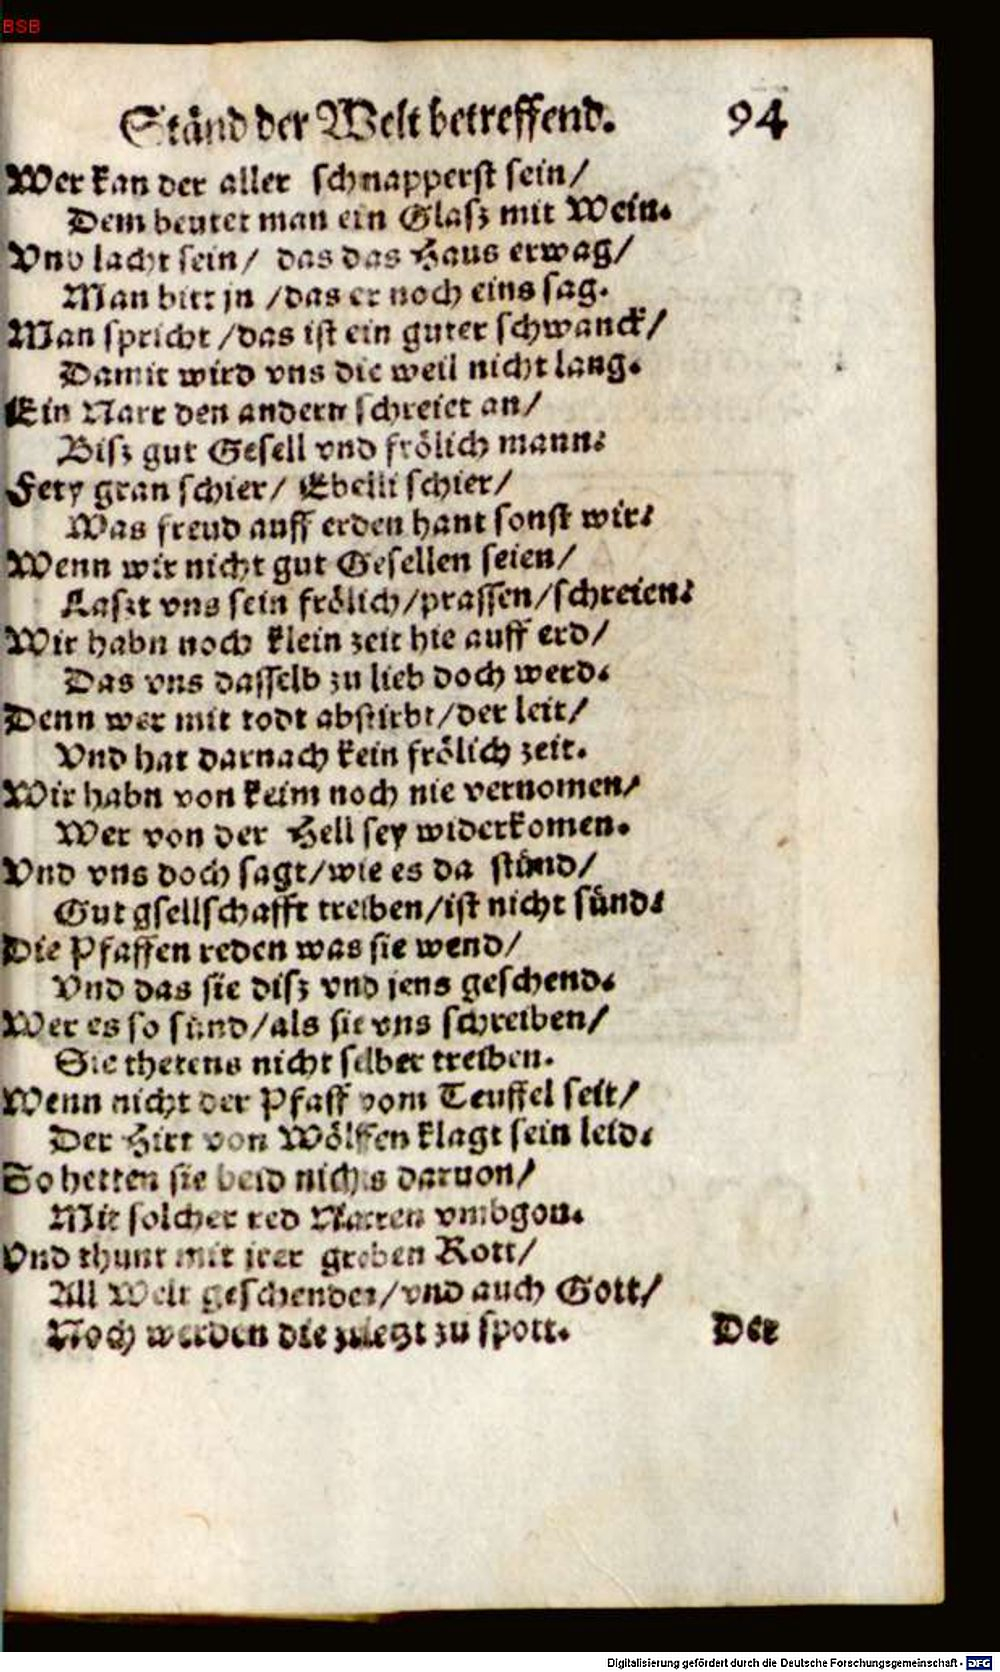 BSB
Ständ der Welt betreffend. 94
Wer kan der aller schnapperst sein/
Dem beutet man ein Glasz mit Wein.
Vnd lacht sein/ das das Haus erwag/
Man bitt jn /das er noch eins sag.
Man spricht /das ist ein guter schwanck/
Damit wird vns die weil nicht lang.
Ein Narr den andern schreiet an/
Bisz gut Gesell vnd frölich mann:
Fety gran schier/ Ebelli schier/
Was freud auff erden hant sonst wir:
Wenn wir nicht gut Gesellen seien/
Laszt vns sein frölich/prassen/schreien:
Wir habn noch klein zeit hie auff erd/
Das vns dasselb zu lieb doch werd.
Denn wer mit todt abstirbt/der leit/
Vnd hat darnach kein frölich zeit.
Wir habn von keim noch nie vernomen/
Wer von der Hell sey widerkomen.
Vnd vns doch sagt/wie es da stünd/
Gut gsellschafft treiben/ist nicht sünd:
Die Pfaffen reden was sie wend/
Vnd das sie disz vnd jens geschend.
Wer es so sünd/als sie vns schreiben/
Sie thetens nicht selber treiben.
Wenn nicht der Pfaff vom Teuffel seit/
Der Hirt von Wölffen klagt sein leid.
So hetten sie beid nichts daruon/
Mit solcher red Narren vmbgon.
Vnd thunt mit jrer groben Rott/
All Welt geschenden/vnd auch Gott/
Noch werden die zuletzt zu spott. Der
Digitalisierung gefördert durch die Deutsche Forschungsgemeinschaft - DFG